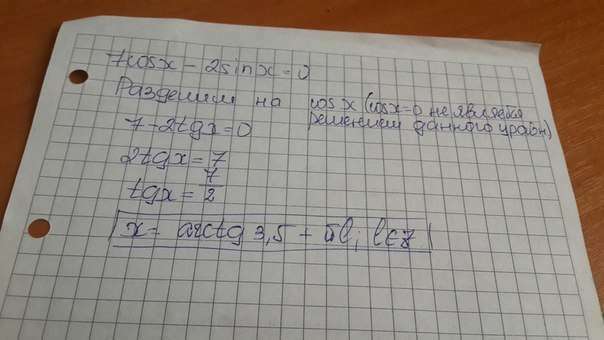 7cosx - 2sinx = 0
Разделим на cosx (cosx=0 не является
решением данного уравн)
7-2tgx=0
2tgx=7
tgx=7/2
x= arctg 3,5 + πl; l∈z